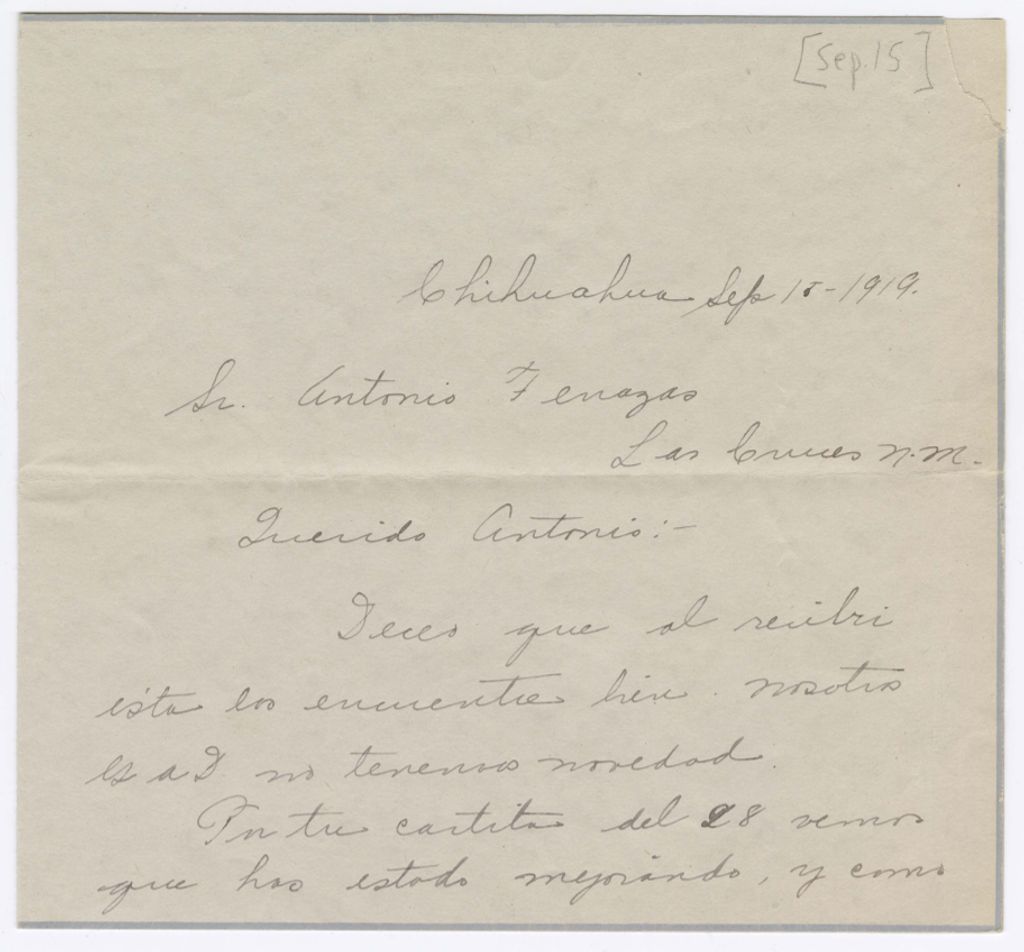 [Sep. 15]
Chihuahua Sep 15-1919.
Sr. Antonio Terrazas
Las Cruces N.M.
Querido Antonio:-
Deceo que al recibri
ésta los encuentre bien. nosotros
G a D no tenemos novedad.
Por tu cartita del 28 vemos
que has estado mejorándo, y como